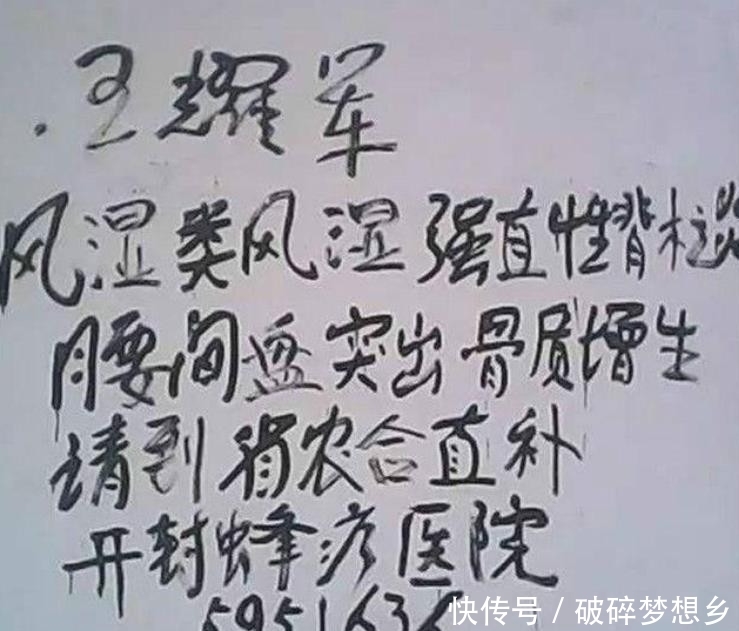 王耀军
风湿类风湿强直性背柱炎
腰间盘突出骨质增生
请到省农合直补
开封蜂疗医院
5951636
快传号 / 破碎梦想乡